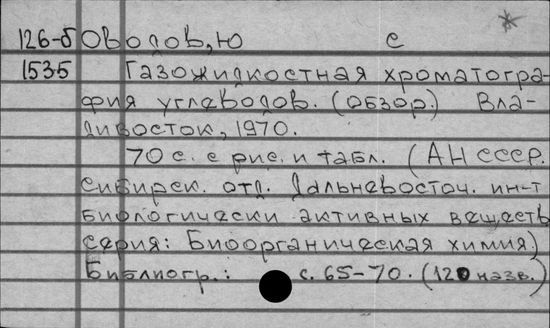 126-б Оводов, Ю С *
1535 Газожидкостная хроматогра-
фия углеводов. (Обзор.) Вла-
дивосток, 1970.
70 с. с рис. и табл. (АН СССР.
Сибирск. отд. Дальневосточ. ин-т
биологически активных веществ
Серия: Биоорганическая химия)
Библиогр.: с. 65-70. (120 назв.)